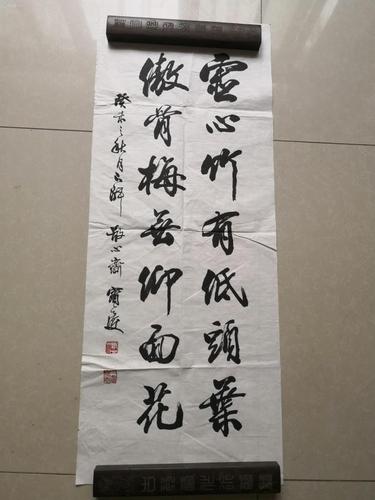 虚心竹有低頭葉
傲骨梅無仰面花
癸未之秋月 心齋